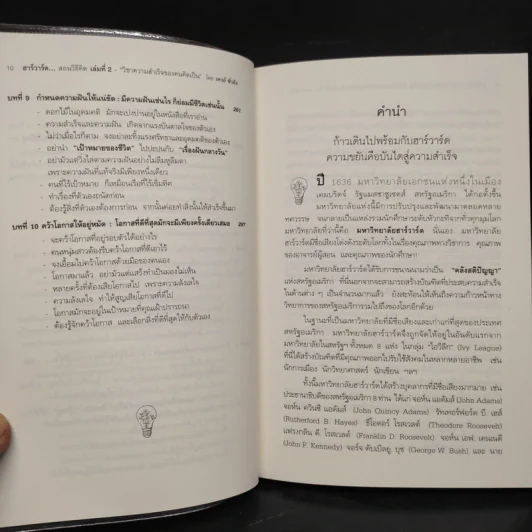 10 ฮาร์วาร์ด... สอนวิธีคิด เล่มที่ 2 - "วิชาความสำเร็จของคนคิดเป็น" โดย
บทที่ 9 กำหนดความฝันให้แน่ชัด : มีความฝันเช่นไร ก็ย่อมมีชีวิตเช่นนั้น
- ดอกไม้ในอุดมคติ มักจะเบ่งบานอยู่ในหนังสือที่เราอ่าน
- ความสำเร็จและความฝัน เกิดจากแรงบันดาลใจของตัวเอง
- ไม่ว่าเมื่อไรก็ตาม จงอย่าละทิ้งแรงศรัทธาและอุดมคติของตัวเอง
- อย่านำ "เป้าหมายของชีวิต" ไปปะปนกับ "เรื่องฝันกลางวัน"
- อย่ามัวแต่วิ่งไล่ตามความฝันอย่างไม่ลืมหูลืมตา
เพราะความฝันที่แท้จริงมีเพียงหนึ่งเดียว
- คนที่ไร้เป้าหมาย ก็เหมือนเรือที่ไร้เข็มทิศ
- ทำเรื่องที่ตัวเองถนัดก่อน
- ต้องรู้สิ่งที่ตัวเองต้องการก่อน จากนั้นค่อยทำสิ่งนั้นให้สำเร็จขึ้นมา
บทที่ 10 คว้าโอกาสให้อยู่หมัด : โอกาสที่ดีที่สุดมักจะมีเพียงครั้งเดียวเสมอ
- จะคว้าโอกาสที่อยู่รอบตัวได้อย่างไร
- คนหนุ่มสาวต้องรีบคว้าโอกาสที่ดีเอาไว้
- จงเอื้อมไปคว้าโอกาสด้วยมือของตนเอง
- โอกาสมาแล้ว อย่ามัวแต่แสร้งทำเป็นมองไม่เห็น
- หลายครั้งที่ต้องเสียโอกาสไป เพราะความลังเลใจ
- ความลังเลใจ ทำให้สูญเสียโอกาสที่ดีไป
- โอกาสมักจะอยู่ในเป้าหมายที่คุณเฝ้าปรารถนา
- ต้องรู้จักคว้าโอกาส และเลือกสิ่งที่ดีที่สุดให้กับตัวเอง
คำนำ
ก้าวเดินไปพร้อมกับฮาร์วาร์ด
ความขยันคือบันไดสู่ความสำเร็จ
ปี 1636 มหาวิทยาลัยเอกชนแห่งหนึ่งในเมือง
เคมบริดจ์ รัฐแมสซาชูเซตส์ สหรัฐอเมริกา ได้ก่อตั้งขึ้น
มหาวิทยาลัยแห่งนี้มีการปรับปรุงและพัฒนามาตลอดหลาย
ทศวรรษ จนกลายเป็นแหล่งรวมนักศึกษาระดับหัวกะทิจากทั่วทุกมุมโลก
มหาวิทยาลัยที่ว่านี้คือ มหาวิทยาลัยฮาร์วาร์ด นั่นเอง มหาวิทยาลัย
ฮาร์วาร์ดมีชื่อเสียงโด่งดังระดับโลกทั้งในเรื่องคุณภาพทางวิชาการ คุณภาพ
ของอาจารย์ผู้สอน และคุณภาพของนักศึกษา
มหาวิทยาลัยฮาร์วาร์ดได้รับการขนานนามว่าเป็น "คลังสติปัญญา"
แห่งสหรัฐอเมริกา ที่นี่นอกจากจะสามารถสร้างบัณฑิตที่ประสบความสำเร็จ
ในด้านต่าง ๆ เป็นจำนวนมากแล้ว ยังสะท้อนให้เห็นถึงความก้าวหน้าทาง
วิทยาการของสหรัฐอเมริการวมไปถึงของโลกอีกด้วย
ในฐานะที่เป็นมหาวิทยาลัยที่มีชื่อเสียงและเก่าแก่ที่สุดของประเทศ
สหรัฐอเมริกา มหาวิทยาลัยฮาร์วาร์ดจึงถูกจัดให้อยู่ในอันดับแรกจาก
มหาวิทยาลัยในสหรัฐฯ ทั้งหมด 8 แห่ง ในกลุ่ม "ไอวีลีก" (Ivy League)
ที่นี่ได้สร้างบัณฑิตที่มีคุณภาพออกไปรับใช้สังคมในหลากหลายอาชีพ เช่น
นักการเมือง นักวิทยาศาสตร์ นักเขียน ฯลฯ
ทั้งนี้มหาวิทยาลัยฮาร์วาร์ดได้สร้างบุคลากรที่มีชื่อเสียงมากมาย เช่น
ประธานาธิบดีของสหรัฐอเมริกา 8 ท่าน ได้แก่ จอห์น แอดัมส์ (John Adams)
จอห์น ควินซี แอดัมส์ (John Quincy Adams) รัทเทอร์ฟอร์ด บี. เฮส์
(Rutherford B. Hayes) ธีโอดอร์ โรสเวลต์ (Theodore Roosevelt)
แฟรงกลิน ดี. โรสเวลต์ (Franklin D. Roosevelt) จอห์น เอฟ. เคนเนดี
(John F. Kennedy) จอร์จ ดับเบิลยู. บุช (George W. Bush) และ นาย